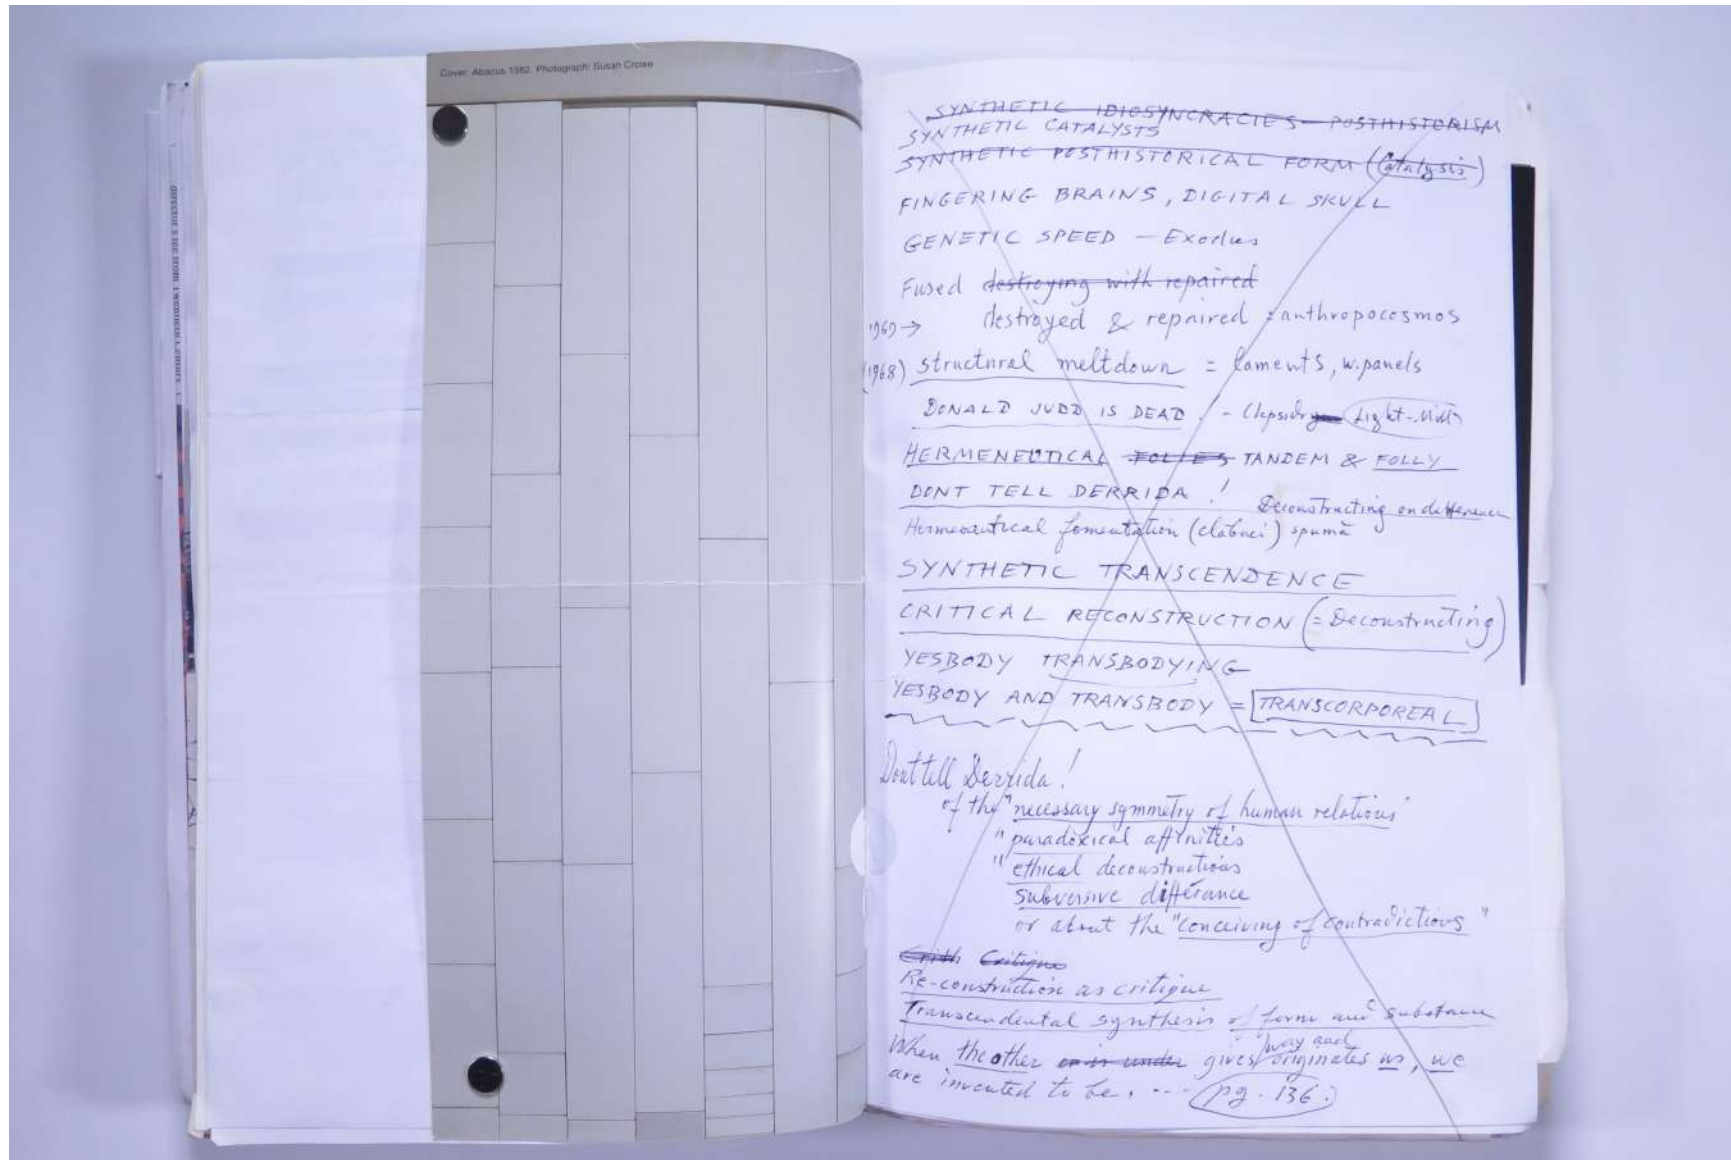 Cover: Abacus 1982. Photograph: Susan Crowe
SYNTHETIC IDIOSYNCRACIES - POSTHISTORISM
SYNTHETIC CATALYSTS
SYNTHETIC POSTHISTORICAL FORM (Catalysis)
FINGERING BRAINS, DIGITAL SKULL
GENETIC SPEED - Exodus
Fused destroying with repaired
1969 → destroyed & repaired = anthropocosmos
(1968) structural meltdown = laments, w.panels
DONALD JUDD IS DEAD! - Light-Mill
HERMENEUTICAL FOLIES TANDEM & FOLLY
DONT TELL DERRIDA!
Deconstructing on difference
Hermeneutical fomentation (clăbuci) spumă
SYNTHETIC TRANSCENDENCE
CRITICAL RECONSTRUCTION (= Deconstructing)
YESBODY TRANSBODYING
YESBODY AND TRANSBODY = TRANSCORPOREAL
Dont tell Derrida!
of the "necessary symmetry of human relations"
" paradoxical affinities
" ethical deconstructions
subversive différance
or about the "conceiving of contradictions"
Critique
Re-construction as critique
Transcendental synthesis of form and substance
When the other or is under gives way and originates us, we
are invented to be. --- pg. 136.